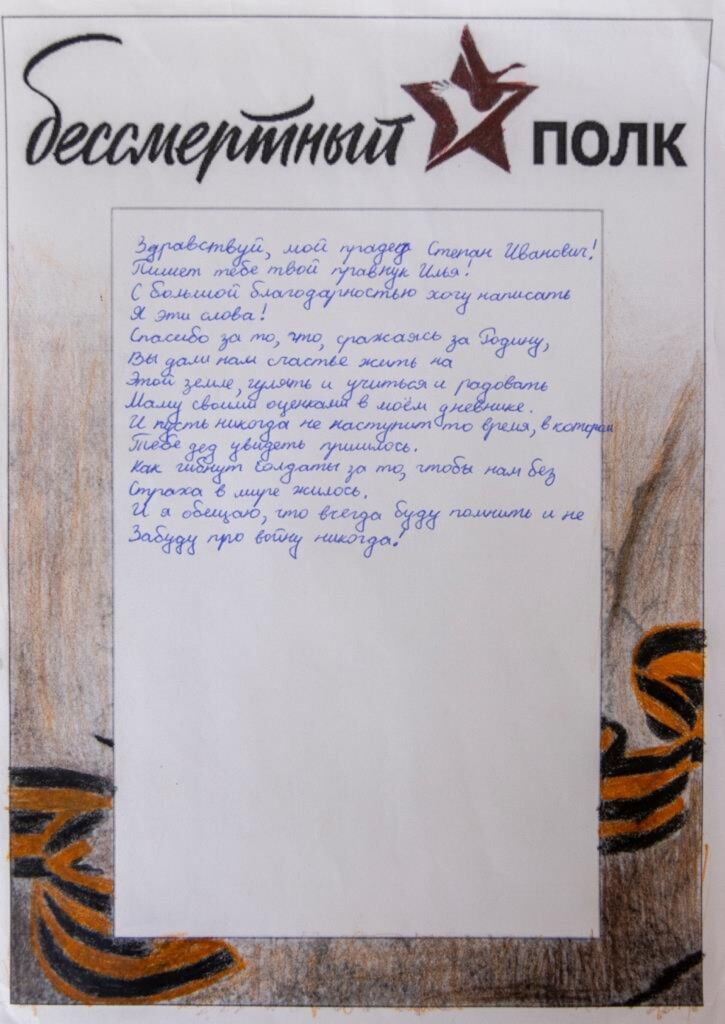 бессмертный ПОЛК
Здравствуй, мой прадед Степан Иванович!
Пишет тебе твой правнук Илья!
С большой благодарностью хочу написать
Я эти слова!
Спасибо за то, что, сражаясь за Родину,
Вы дали нам счастье жить на
Этой земле, гулять и учиться и радовать
Маму своими оценками в моём дневнике.
И пусть никогда не наступит то время, в котором
Тебе дед увидеть пришлось.
Как гибнут солдаты за то, чтобы нам без
Страха в мире жилось.
И я обещаю, что всегда буду помнить и не
Забуду про войну никогда!